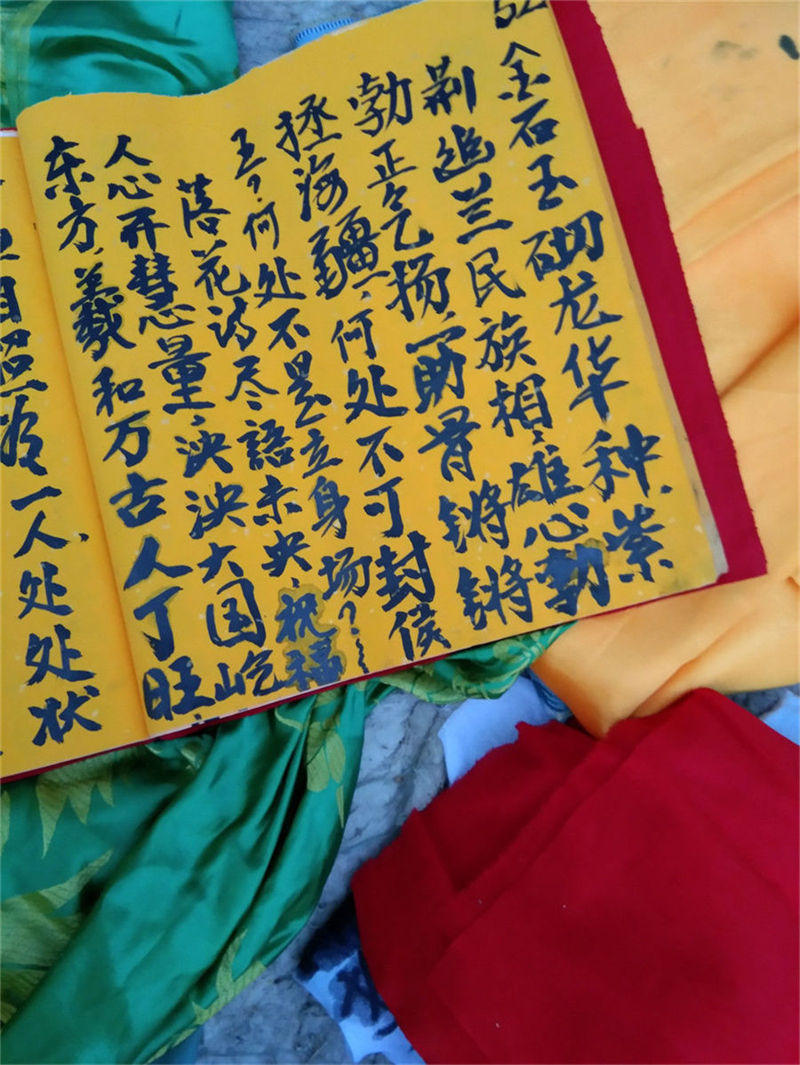 52
金石玉砌龙华种.紫
荆追兰民族相,雄心勃
勃正气扬,一助脊锵锵
拯海疆,何处不可封侯
王?何处不是立身场?
落花诗尽語未央,祝福
人心开慧量,泱泱大国屹
东方,羲和万古人丁旺
自照
有一人处处状